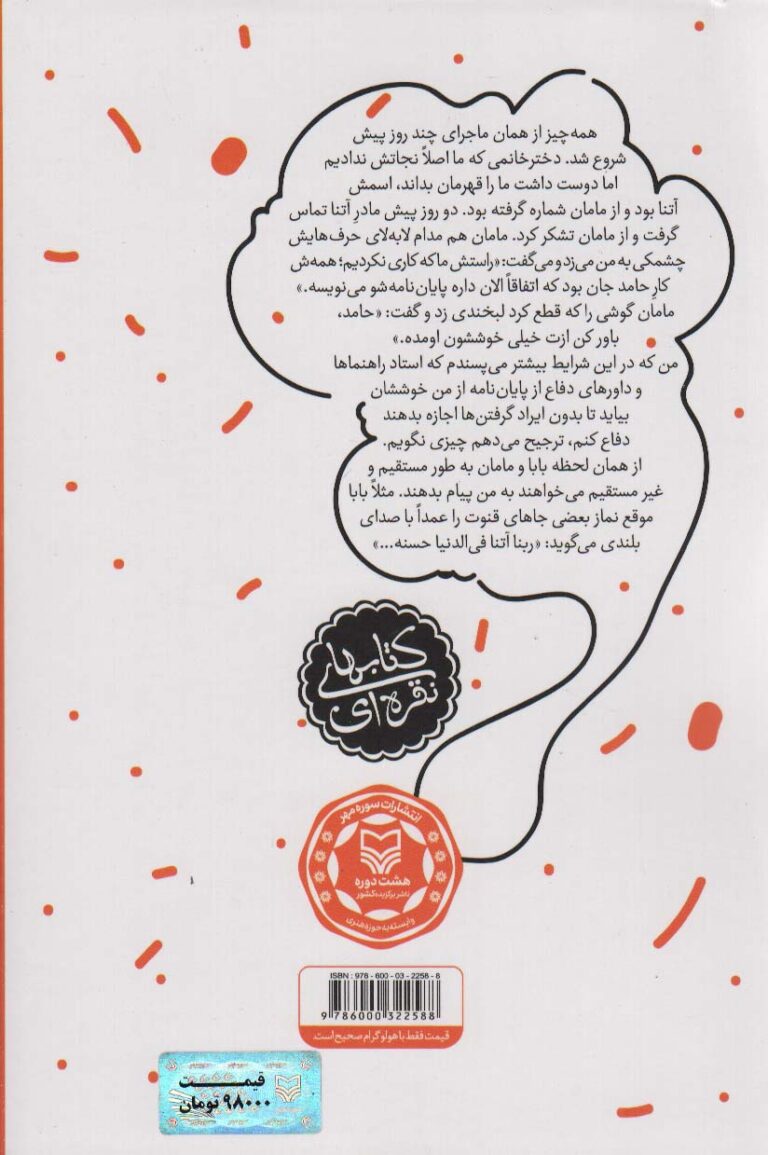 همه‌چیز از همان ماجرای چند روز پیش
شروع شد. دخترخانمی که ما اصلاً نجاتش ندادیم
اما دوست داشت ما را قهرمان بداند، اسمش
آتنا بود و از مامان شماره گرفته بود. دو روز پیش مادرِ آتنا تماس
گرفت و از مامان تشکر کرد. مامان هم مدام لابه‌لای حرف‌هایش
چشمکی به من می‌زد و می‌گفت: «راستش ما که کاری نکردیم؛ همه‌ش
کارِ حامد جان بود که اتفاقاً الان داره پایان‌نامه‌شو می‌نویسه.»
مامان گوشی را که قطع کرد لبخندی زد و گفت: «حامد،
باور کن ازت خیلی خوششون اومده.»
من که در این شرایط بیشتر می‌پسندم که استاد راهنماها
و داورهای دفاع از پایان‌نامه از من خوششان
بیاید تا بدون ایراد گرفتن‌ها اجازه بدهند
دفاع کنم، ترجیح می‌دهم چیزی نگویم.
از همان لحظه بابا و مامان به طور مستقیم و
غیر مستقیم می‌خواهند به من پیام بدهند. مثلاً بابا
موقع نماز بعضی جاهای قنوت را عمداً با صدای
بلندی می‌گوید: «ربنا آتنا فی‌الدنیا حسنه...»
کتابهای
نقره‌ای
انتشارات سوره مهر
هشت دوره
ناشر برگزیده کشور
وابسته به حوزه هنری
ISBN : 978 - 600 - 03 - 2258 - 8
9 786000 322588
قیمت فقط با هولوگرام صحیح است.
قیمــــت
۹۸۰۰۰ تومان